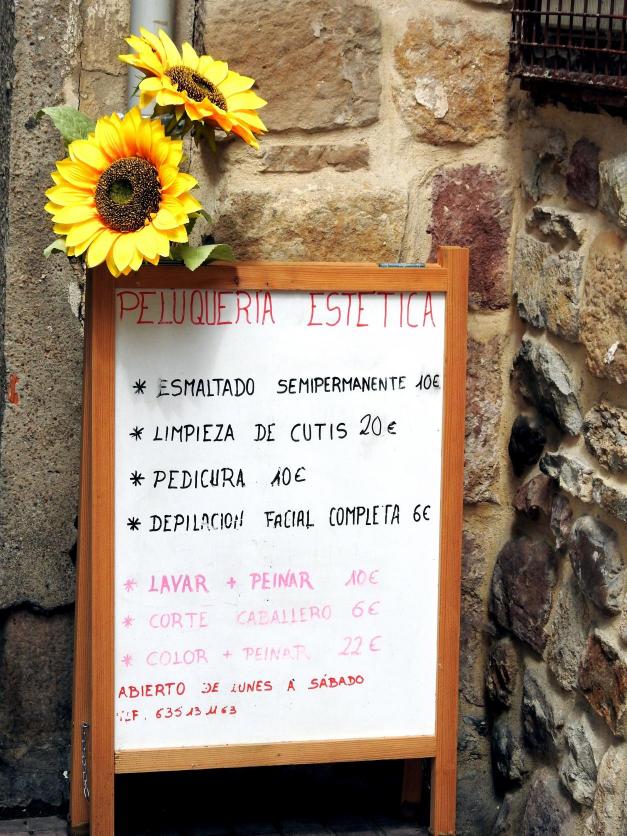 PELUQUERIA ESTETICA
* ESMALTADO SEMIPERMANENTE 10€
* LIMPIEZA DE CUTIS 20€
* PEDICURA 10€
* DEPILACION FACIAL COMPLETA 6€
* LAVAR + PEINAR 10€
* CORTE CABALLERO 6€
* COLOR + PEINAR 22€
ABIERTO DE LUNES A SÁBADO
TLF. 635 13 11 63